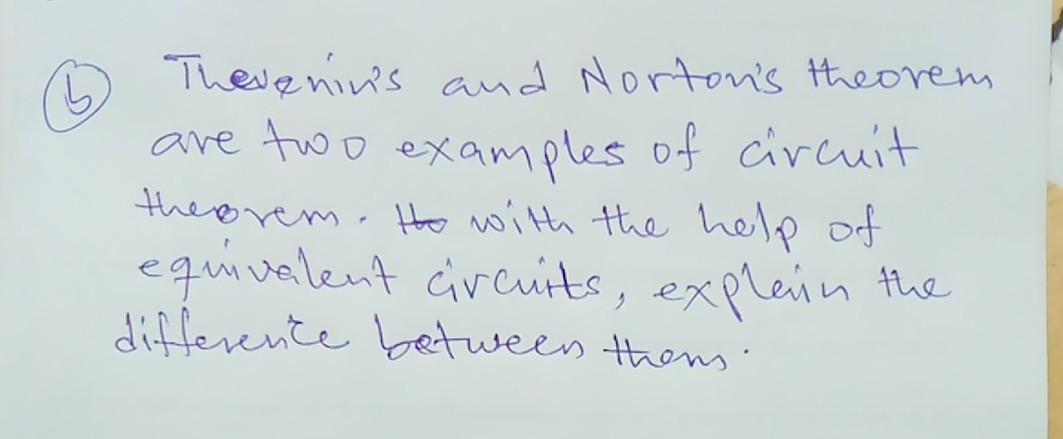 (b) Thevenin's and Norton's theorem
are two examples of circuit
theorem. with the help of
equivalent circuits, explain the
difference between them.